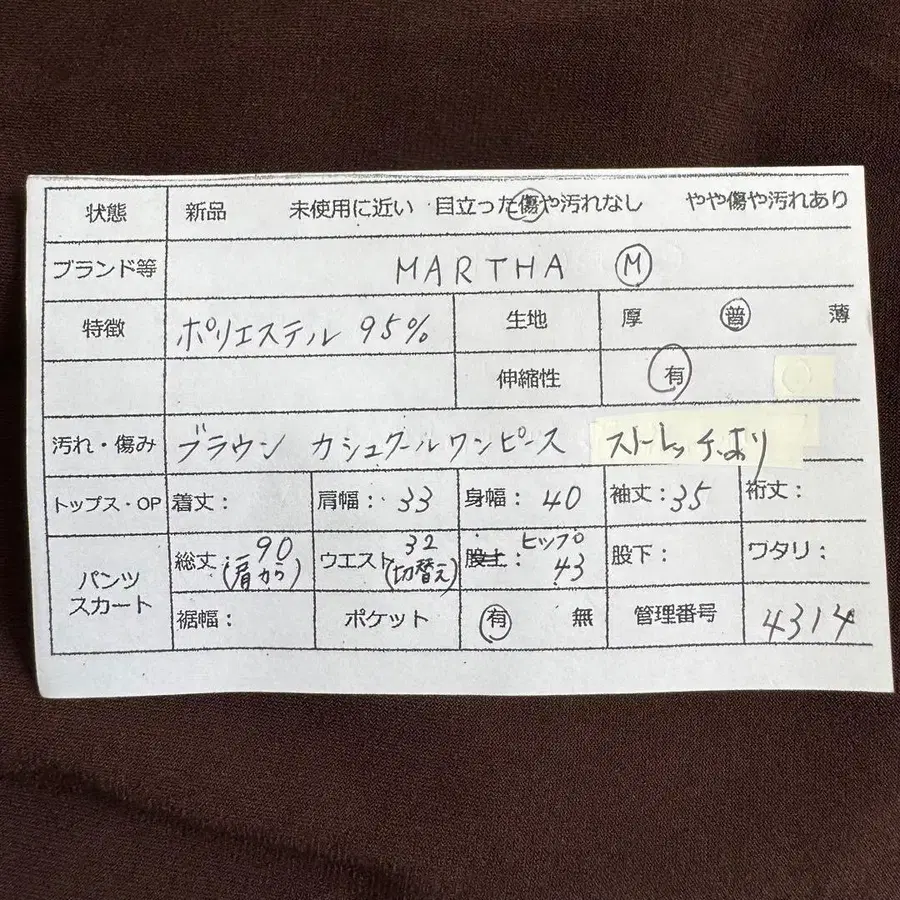 状態 新品 未使用に近い 目立った傷や汚れなし やや傷や汚れあり
ブランド等 MARTHA M
特徴 ポリエステル 95% 生地 厚 普 薄
伸縮性 有
汚れ・傷み ブラウン カシュクールワンピース ストレッチあり
トップス・OP 着丈: 肩幅: 33 身幅: 40 袖丈:35 裄丈:
パンツ スカート 総丈:90 (肩から) ウエスト 32 (切替え) 股上: ヒップ 43 股下: ワタリ:
裾幅: ポケット 有 無 管理番号 4314